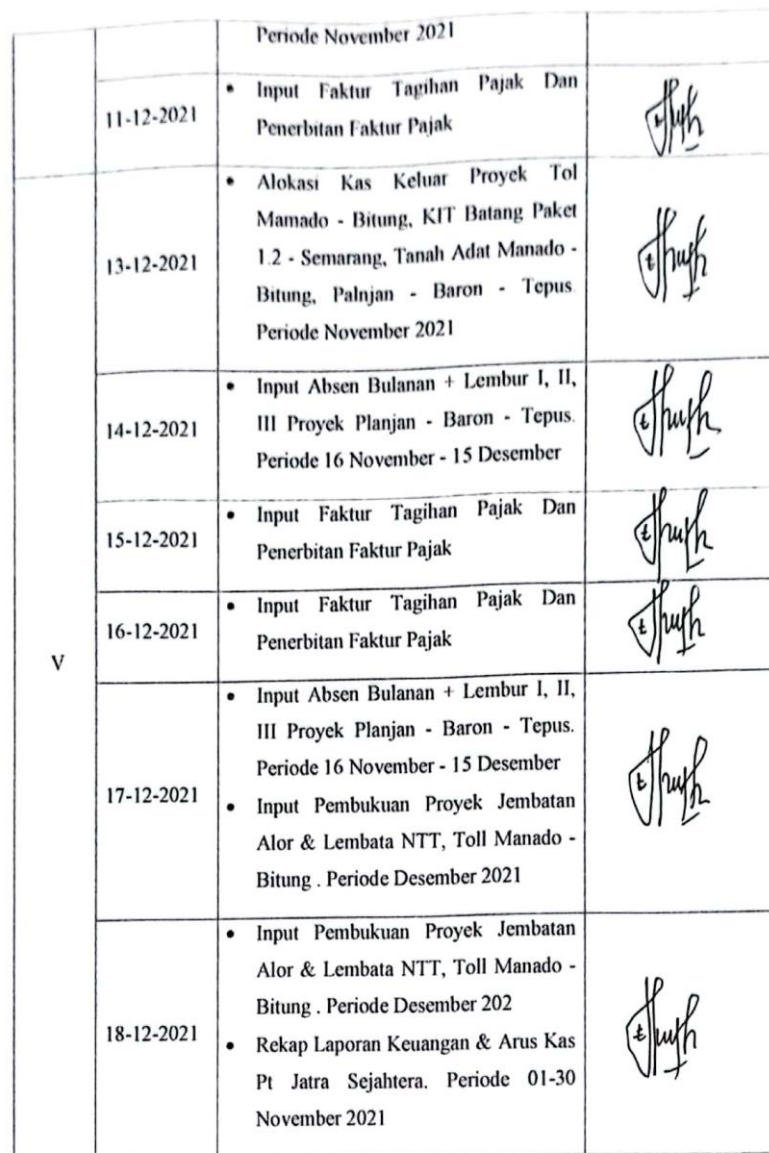 Periode November 2021
11-12-2021
• Input Faktur Tagihan Pajak Dan
Penerbitan Faktur Pajak
V
13-12-2021
• Alokasi Kas Keluar Proyek Tol
Mamado - Bitung, KIT Batang Paket
1.2 - Semarang, Tanah Adat Manado -
Bitung, Palnjan - Baron - Tepus.
Periode November 2021
14-12-2021
• Input Absen Bulanan + Lembur I, II,
III Proyek Planjan - Baron - Tepus.
Periode 16 November - 15 Desember
15-12-2021
• Input Faktur Tagihan Pajak Dan
Penerbitan Faktur Pajak
16-12-2021
• Input Faktur Tagihan Pajak Dan
Penerbitan Faktur Pajak
17-12-2021
• Input Absen Bulanan + Lembur I, II,
III Proyek Planjan - Baron - Tepus.
Periode 16 November - 15 Desember
• Input Pembukuan Proyek Jembatan
Alor & Lembata NTT, Toll Manado -
Bitung . Periode Desember 2021
18-12-2021
• Input Pembukuan Proyek Jembatan
Alor & Lembata NTT, Toll Manado -
Bitung . Periode Desember 202
• Rekap Laporan Keuangan & Arus Kas
Pt Jatra Sejahtera. Periode 01-30
November 2021